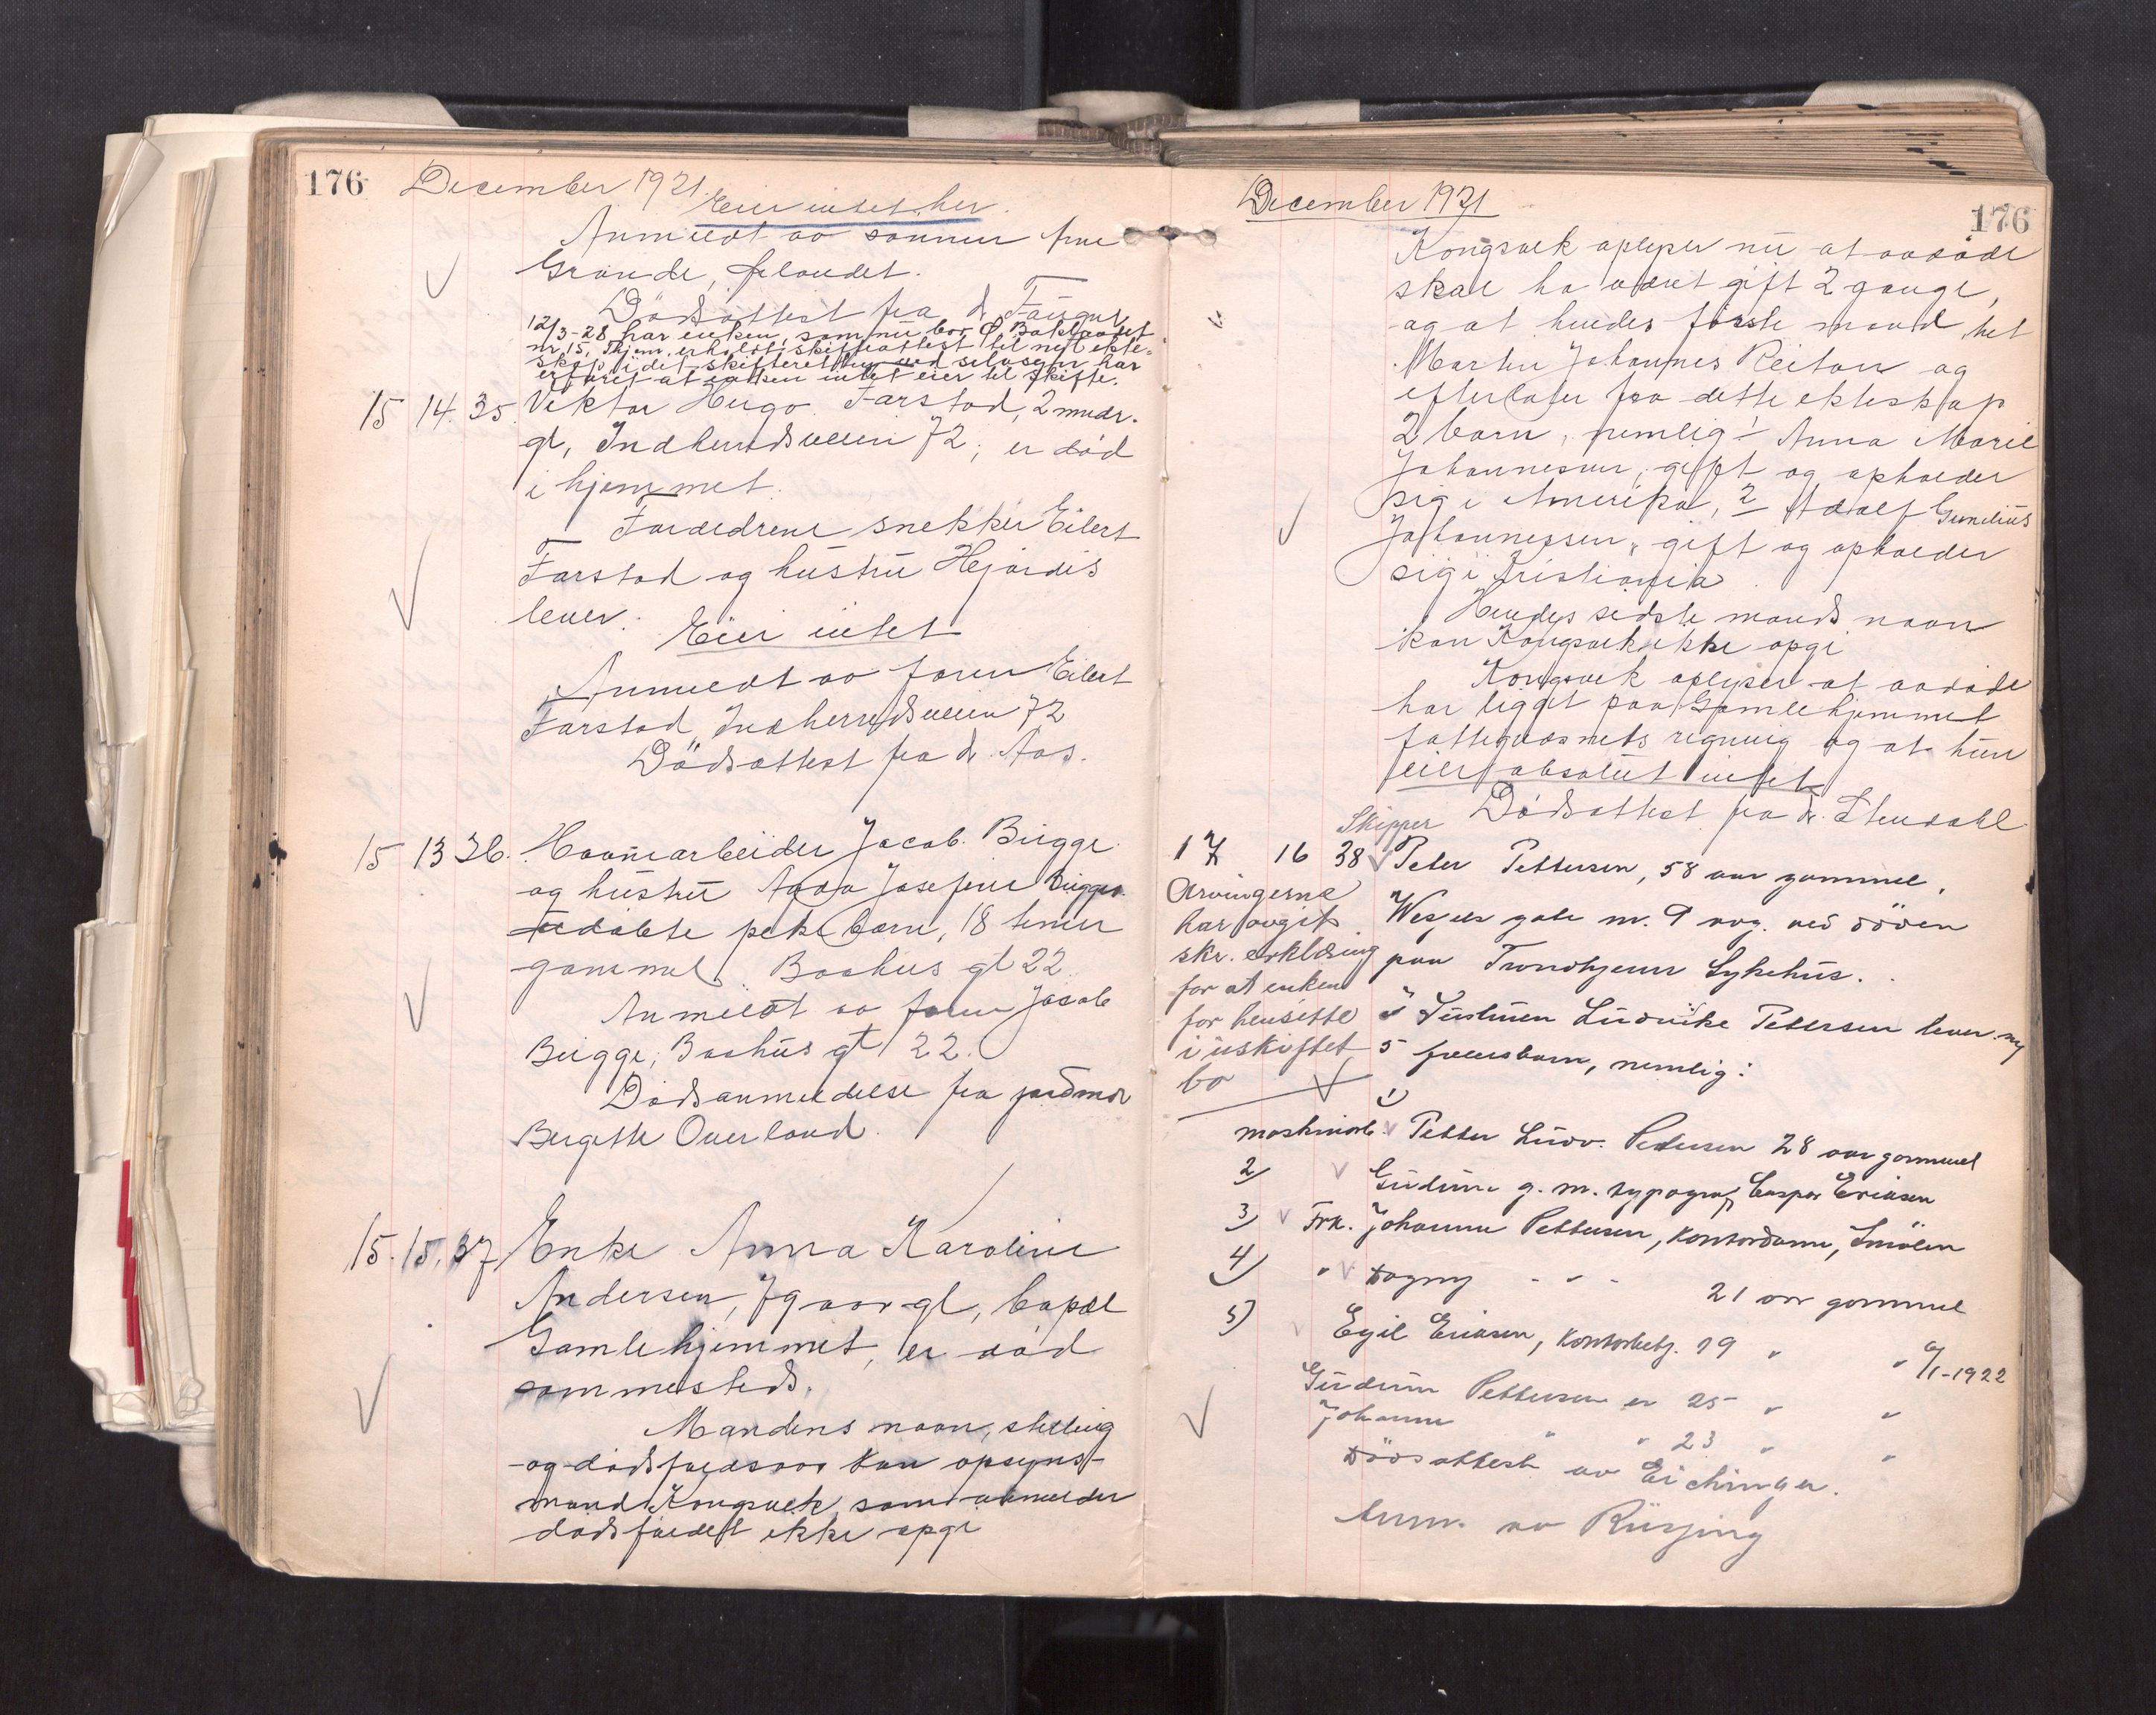 176 December 1921
Eier intet her.
Anmeldt av sønnen frue
Grande, 
Dødsattest fra dr. Fürgur
12/3-28 har enken, som nu bor Ø. Baklandet
nr 15, Thjem, erholdt skifteattest til nyt ekte-
skap, idet skifteretten ved selvsyn har
erfaret at enken intet eier til skifte.
15 14. 35. Viktor Hugo Farstad, 2 mndr.
gl, Indherredsveien 72, er død
i hjemmet.
Forældrene snekker Eilert
Farstad og hustru Hjørdis
lever.
Eier intet
Anmeldt av faren Eilert
Farstad, Indherredsveien 72
Dødsattest fra dr. Aas.
15 13 36. Havnearbeider Jacob Bügge
og hustru Josefine Bügges
udøbte pikebarn, 18 timer
gammel. Baahus gt 22.
Anmeldt av faren Jacob
Bügge, Baahus gt 22.
Dødsanmeldelse fra jordmor
Bergitte Overland.
15. 15. 37 Enke Anna Karoline
Andersen, 79 aar gl, bopæl
Gamlehjemmet, er død
sammesteds.
Mandens navn, stilling
og dødsfaldsaar kan opsyns-
mand Kongsvek som anmelder
dødsfaldet ikke opgi
December 1921
176
Kongsvek oplyser nu at avdøde
skal ha været gift 2 gange,
og at hendes første mand het
Martin Johannes Reitan og
efterlater fra dette ekteskap
2 barn, nemlig: Anna Marie
Johannesen, gift og opholder
sig i Amerika, 2 Adolf Gunelius
Johannessen, gift og opholder
sig i Kristiania.
Hendes sidste mands navn
kan Kongsvek ikke opgi
Kongsvek oplyser at avdøde
har ligget paa Gamlehjemmet
fattigvæsnets regning og at hun
eier absolut intet
Dødsattest fra dr. Stendahl
Skipper
17 16 38 Peter Pettersen, 58 aar gammel,
Wessels gate nr. 9 avg. ved døden
paa Trondhjems Sykehus.
Hustruen Ludvike Pettersen lever og
5 fællesbarn, nemlig:
Arvingerne
har avgit
skr. erklæring
for at enken
for hensitte
i uskiftet
bo
1)
maskinarb. Petter Ludv. Pedersen 28 aar gammel
2) Gudrun g. m. typograf Caspar Eriksen
3) Frk. Johanna Pettersen, kontordame, Smølen
4) " Dagny - " - 21 aar gammel
5) Egil Eriksen, kontorbetj. 19 " " 9/1-1922
Gudrun Pettersen er 25 " "
Johanna " " 23 " "
Dødsattest av Eichinger.
Anm. av Rüsjing